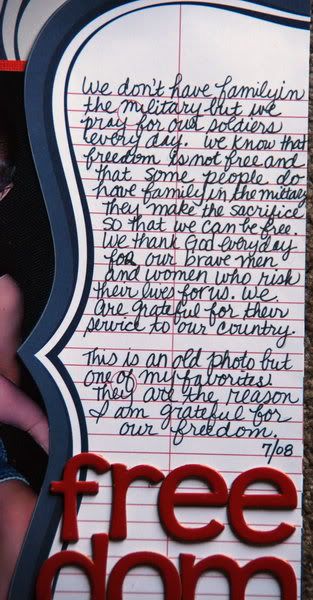 We don't have family in
the military but we
pray for out soldiers
every day. We know that
freedom is not free and
that some people do
have family in the military
They make the sacrifice
so that we can be free.
We thank God everyday
for our brave men
and women who risk
their lives for us. We
are grateful for their
service to our country.
This is an old photo but
one of my favorites.
They are the reason
I am grateful for
our freedom.
7/08
free
dom